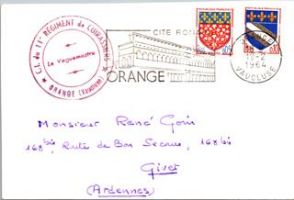 C.I. du 11e REGIMENT de CUIRASSIERS
Le Vaguemestre
ORANGE (Vaucluse)
CITE RO
ORANGE
1964
VAUCLUSE
Monsieur René Goin
168bis, Route de Bon Secours, 168bis
Givet
(Ardennes)